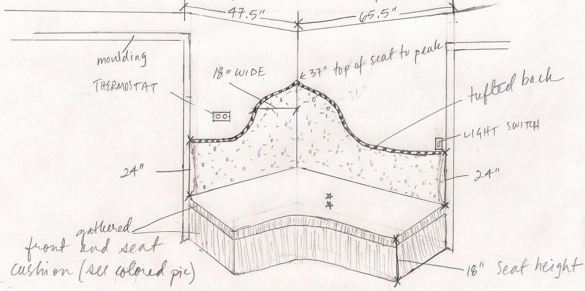 47.5"
65.5"
moulding
THERMOSTAT
18" WIDE
37" top of seat to peak
36"
tufted back
LIGHT SWITCH
24"
24"
gathered
front and seat
cushion (see colored pic)
18" seat height